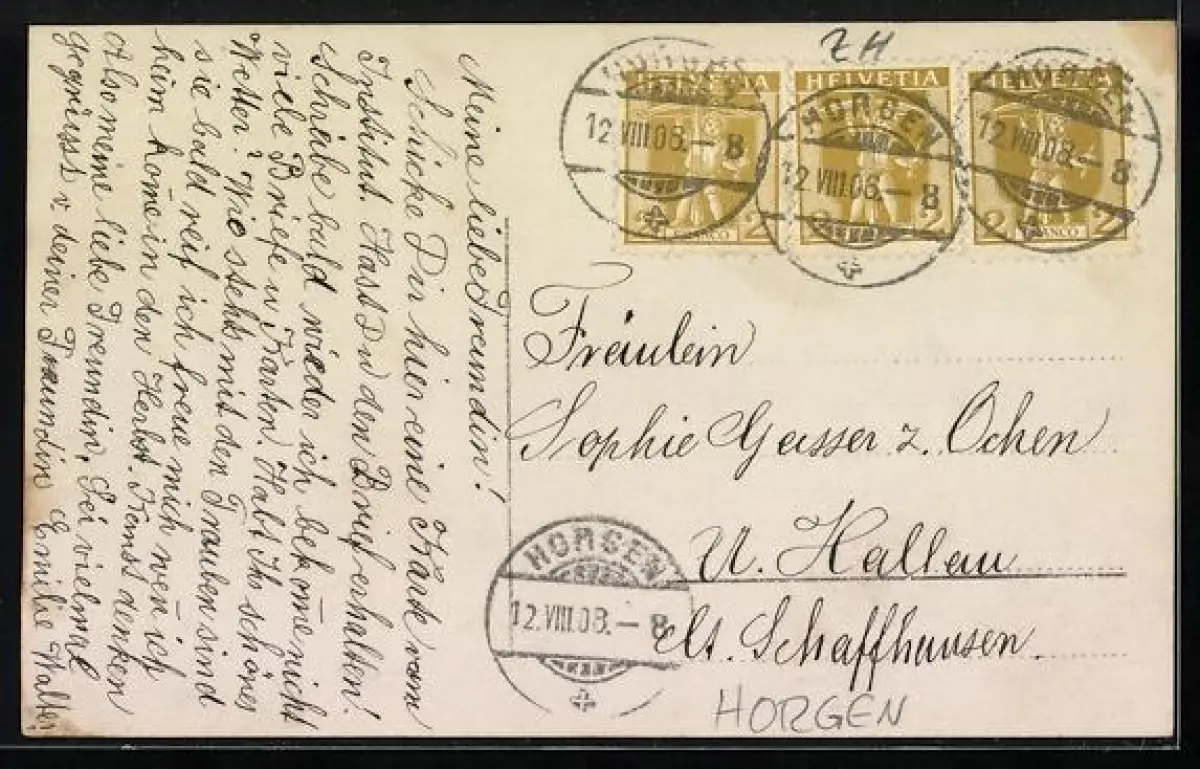 Meine liebe Freundin!
Schicke Dir hier eine Karte vom
Institut. Hast Du den Brief erhalten!
Schreibe bald wieder ich bekom̅e nicht
viele Briefe u Karten. Habt Ihr schönes
Wetter? Wie steht mit den Trauben sind
sie bald reif ich freue mich wen̅ ich
heim kom̅e in den Herbst.
Also meine liebe Freundin, Sei vielmal
gegrüsst v deiner Freundin Emilie Walter
ZH
HELVETIA
HELVETIA
HELVETIA
2 FRANCO 2
2 2
2 FRANCO 2
HORGEN
12.VIII.08.–8
HORGEN
12.VIII.08.–8
HORGEN
12.VIII.08.–8
Fräulein
Sophie Gasser z. Ochen
U. Hallau
Ct. Schaffhausen.
HORGEN
12.VIII.08.–8
HORGEN